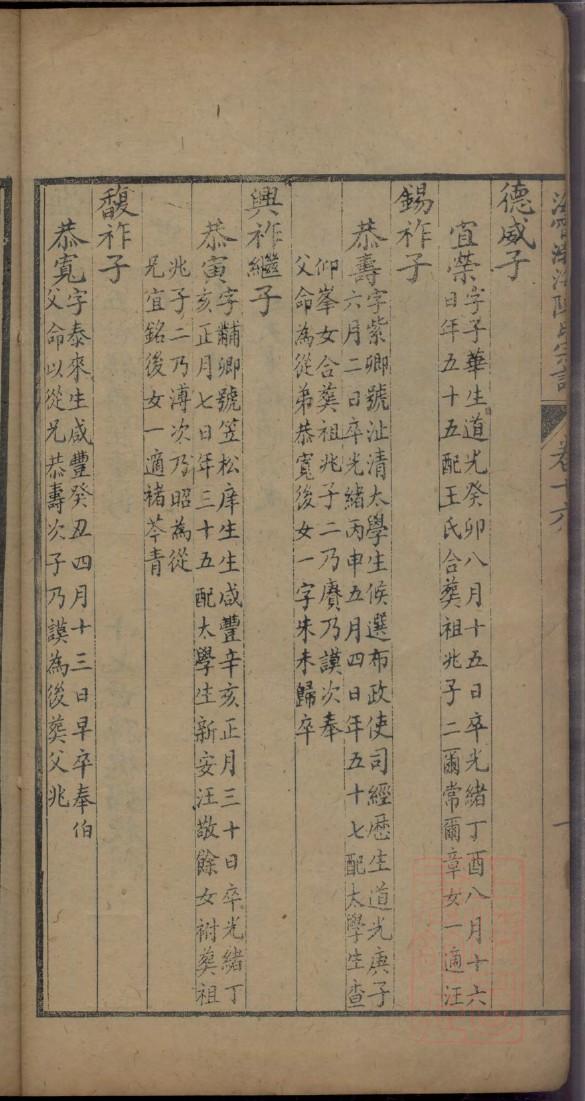 德威子
宜榮字子華生道光癸卯八月十五日卒光緒丁酉八月十六
日年五十五配王氏合葬祖兆子二爾常爾章女一適汪
錫祚子
恭壽字紫卿號沚清太學生候選布政使司經歷生道光庚子
六月二日卒光緒丙申五月四日年五十七配太學生查
仰峯女合葬祖兆子二乃賡乃謨次奉
父命為從弟恭寬後女一字朱未歸卒
興祚繼子
恭寅字黼卿號笠松庠生生咸豐辛亥正月三十日卒光緒丁
亥正月七日年三十五配太學生新安汪敬餘女祔葬祖
兆子二乃溥次乃昭為從
兄宜銘後女一適褚苓青
馥祚子
恭寬字泰來生咸豐癸丑四月十三日早卒奉伯
父命以從兄恭壽次子乃謨為後葬父兆
卷十六